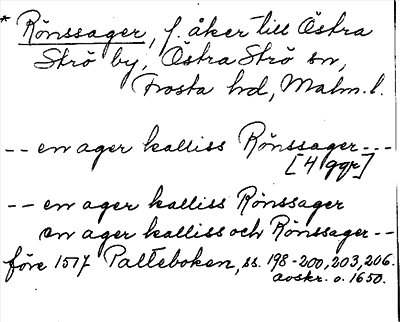 * Rönssager, f. åker till Östra
Strö by, Östra Strö sn,
Frosta hd, Malm. l.
-- en ager kalliss Rönssager---
[4 ggr]
-- en ager kalliss Rönssager
en ager kalliss och Rönssager--
före 1517 Palteboken, ss. 198-200, 203, 206.
avskr. o. 1650.